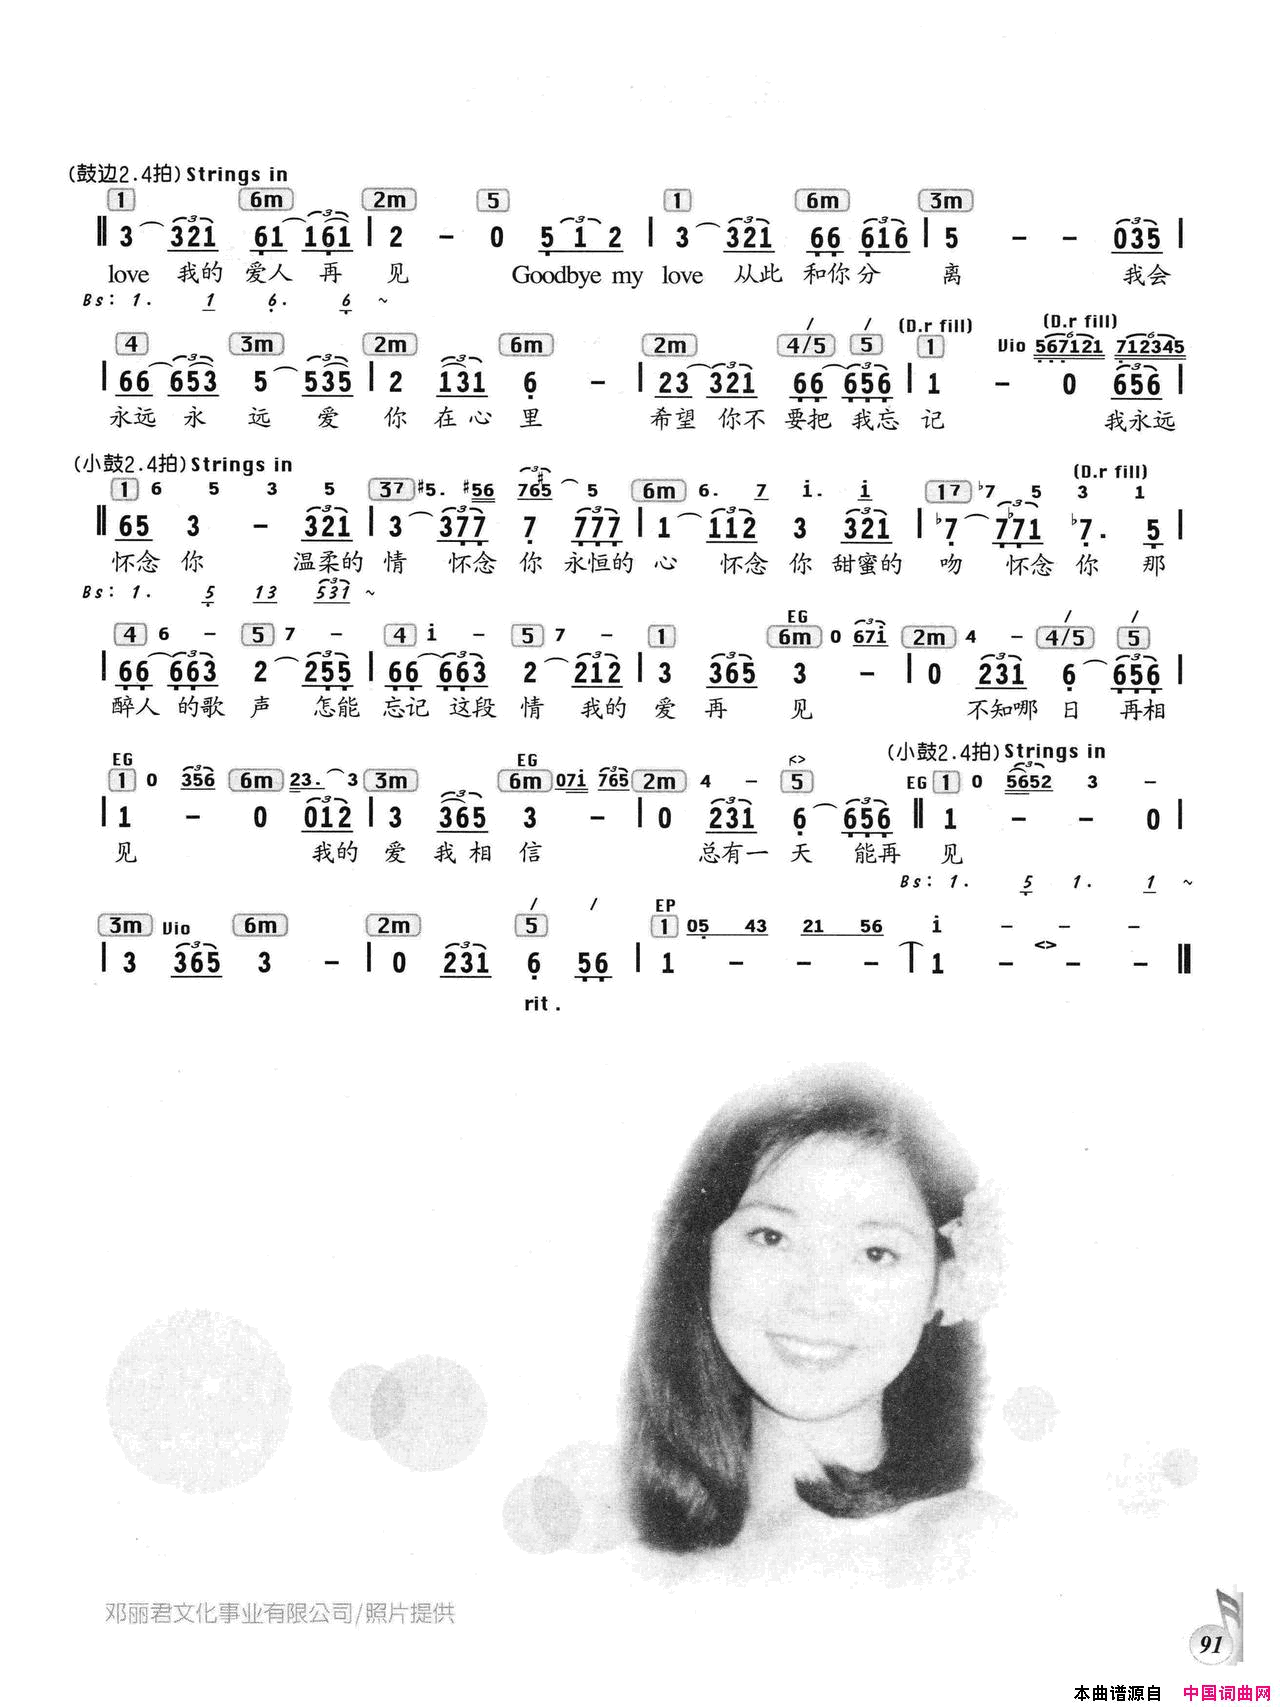 (鼓边2.4拍) Strings in
1 6m 2m 5 1 6m 3m
3 321 61 161 | 2 - 0 5 1 2 | 3 321 66 616 | 5 - - 035 |
love 我的 爱人 再 见 Goodbye my love 从此 和你分 离 我会
Bs: 1. 1 6. 6 ~
(D.r fill) (D.r fill)
4 3m 2m 6m 2m 4/5 5 1 Vio 567121 712345
| 66 653 5 535 | 2 131 6 - | 23 321 66 656 | 1 - 0 656 |
永远 永 远 爱 你 在心 里 希望 你不 要把 我忘 记 我永远
(小鼓2.4拍) Strings in
(D.r fill)
1 6 5 3 5 37 #5. #56 765 5 6m 6. 7 i. i 17 b7 5 3 1
65 3 - 321 | 3 377 7 777 | 1 112 3 321 | b7 b771 b7. 5 |
怀念 你 温柔的 情 怀念 你 永恒的 心 怀念 你 甜蜜的 吻 怀念 你 那
Bs: 1. 5 13 531 ~
EG
4 6 - 5 7 - 4 i - 5 7 - 1 6m 0 67i 2m 4 - 4/5 5
| 66 663 2 255 | 66 663 2 212 | 3 365 3 - | 0 231 6 656 |
醉人 的歌 声 怎能 忘记 这段 情 我的 爱 再 见 不知哪 日 再相
(小鼓2.4拍) Strings in
EG EG <>
1 0 356 6m 23. 3 3m 6m 07i 765 2m 4 - 5 EG 1 0 5652 3 -
| 1 - 0 012 | 3 365 3 - | 0 231 6 656 || 1 - - 0 |
见 我的 爱 我 相 信 总有一 天 能再 见
Bs: 1. 5 1. 1 ~
EP
3m Vio 6m 2m 5 1 05 43 21 56 i - - -
<>
| 3 365 3 - | 0 231 6 56 | 1 - - - | 1 - - - ||
rit.
邓丽君文化事业有限公司/照片提供
91
本曲谱源自 中国词曲网